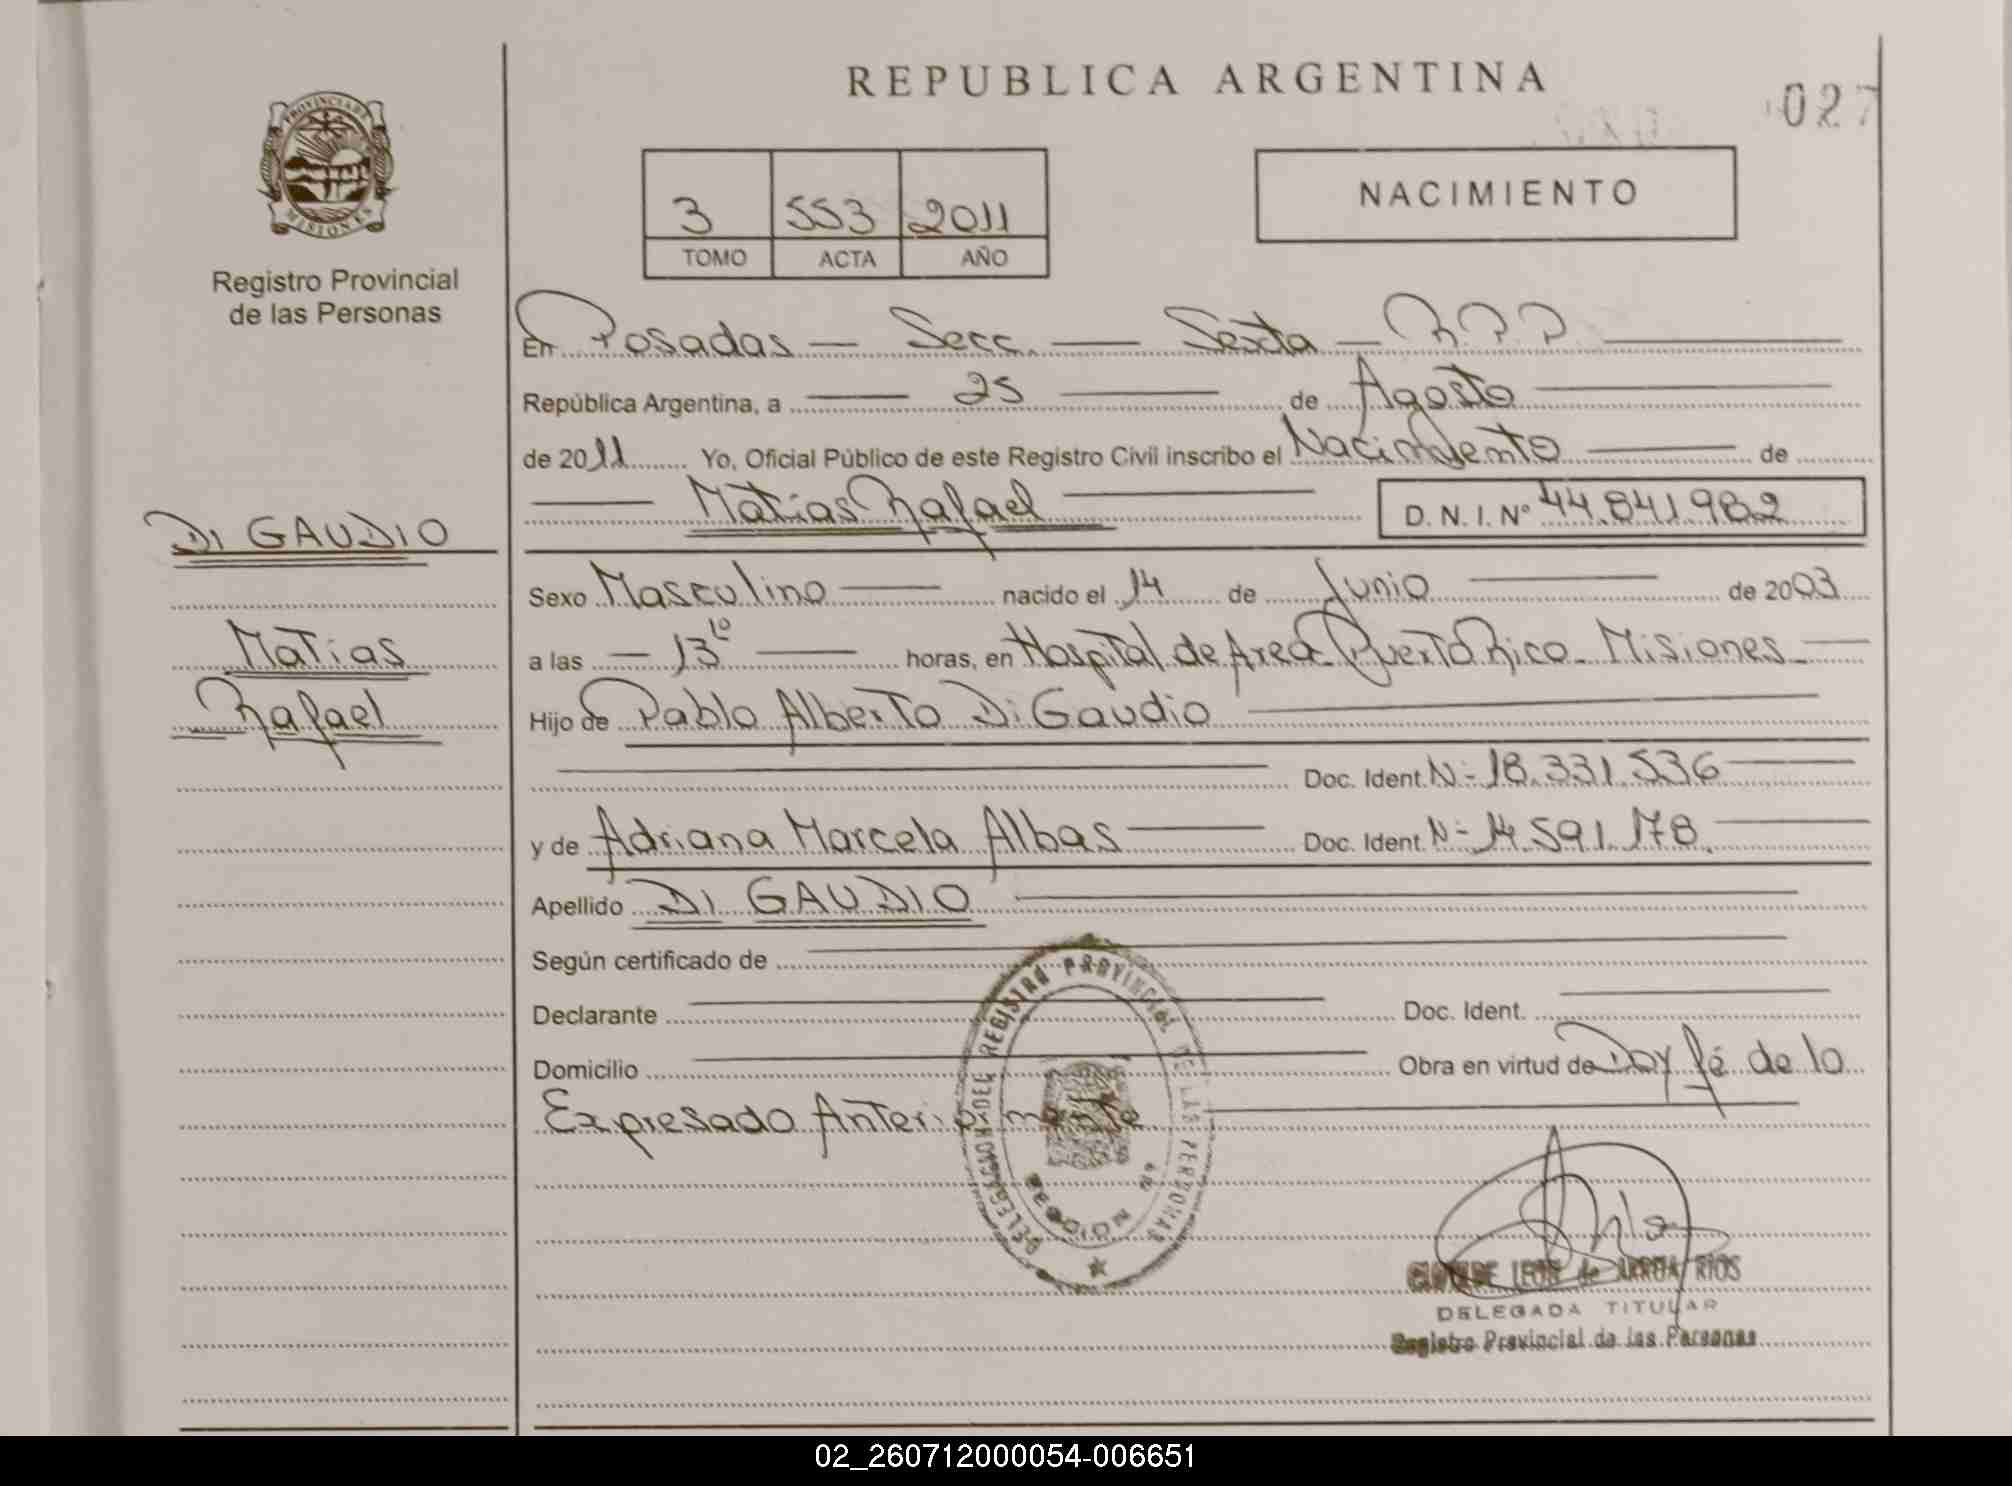 REPUBLICA ARGENTINA
027
PROVINCIA DE
MISIONES
Registro Provincial
de las Personas
3 553 2011
TOMO ACTA AÑO
NACIMIENTO
En Posadas — Secc. — Sexta — R.P.P.
República Argentina, a — 25 — de Agosto
de 2011 Yo, Oficial Público de este Registro Civil inscribo el Nacimiento — de
— Matías Rafael — D. N. I. Nº 44.841.982
DI GAUDIO
Matías
Rafael
Sexo Masculino — nacido el 14 de Junio — de 2003
a las — 13 10 — horas, en Hospital de Area Puerto Rico - Misiones -
Hijo de Pablo Alberto Di Gaudio
Doc. Ident. Nº 18.331.536
y de Adriana Marcela Albas — Doc. Ident. Nº 14.591.178.
Apellido DI GAUDIO
Según certificado de
Declarante Doc. Ident.
Domicilio Obra en virtud de Doy fé de lo
Expresado Anteriormente
DELEGACION DEL REGISTRO PROVINCIAL DE LAS PERSONAS
LEON de ARROA RIOS
DELEGADA TITULAR
Registro Provincial de las Personas
02_260712000054-006651